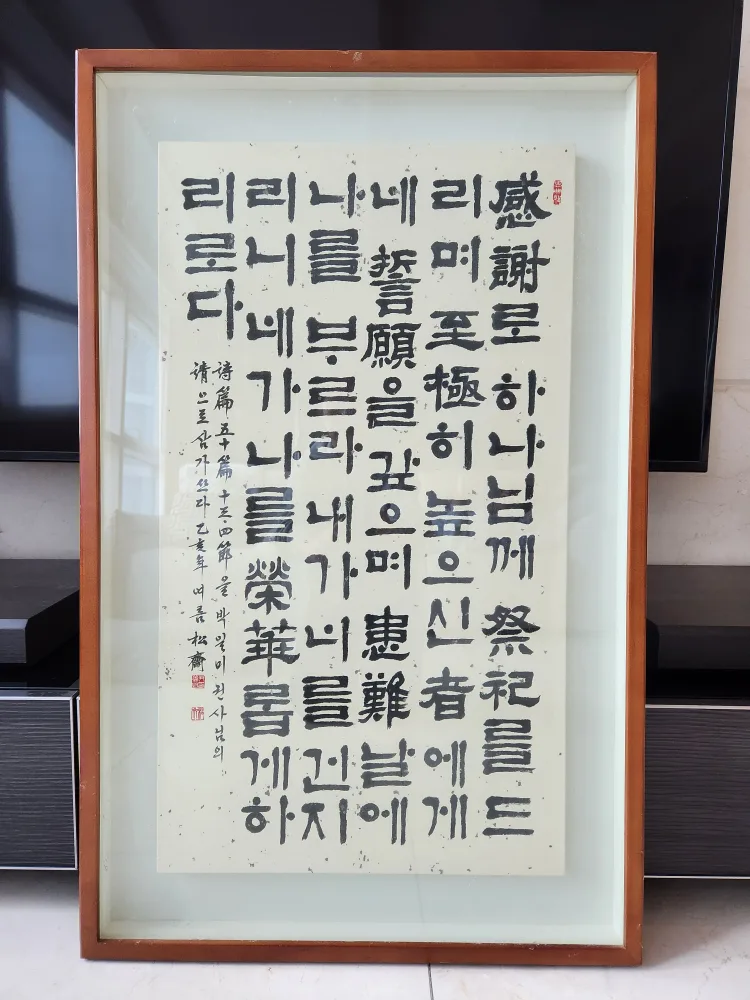 感謝로 하나님께 祭祀를 드
리며 至極히 높으신 者에게
네 誓願을 갚으며 患難날에
나를 부르라 내가 너를 건지
리니 네가 나를 榮華롭게하
리로다
詩篇 五十篇 十三.四節을 박일미 권사님의
請으로 삼가 쓰다 乙亥年 여름 松齋